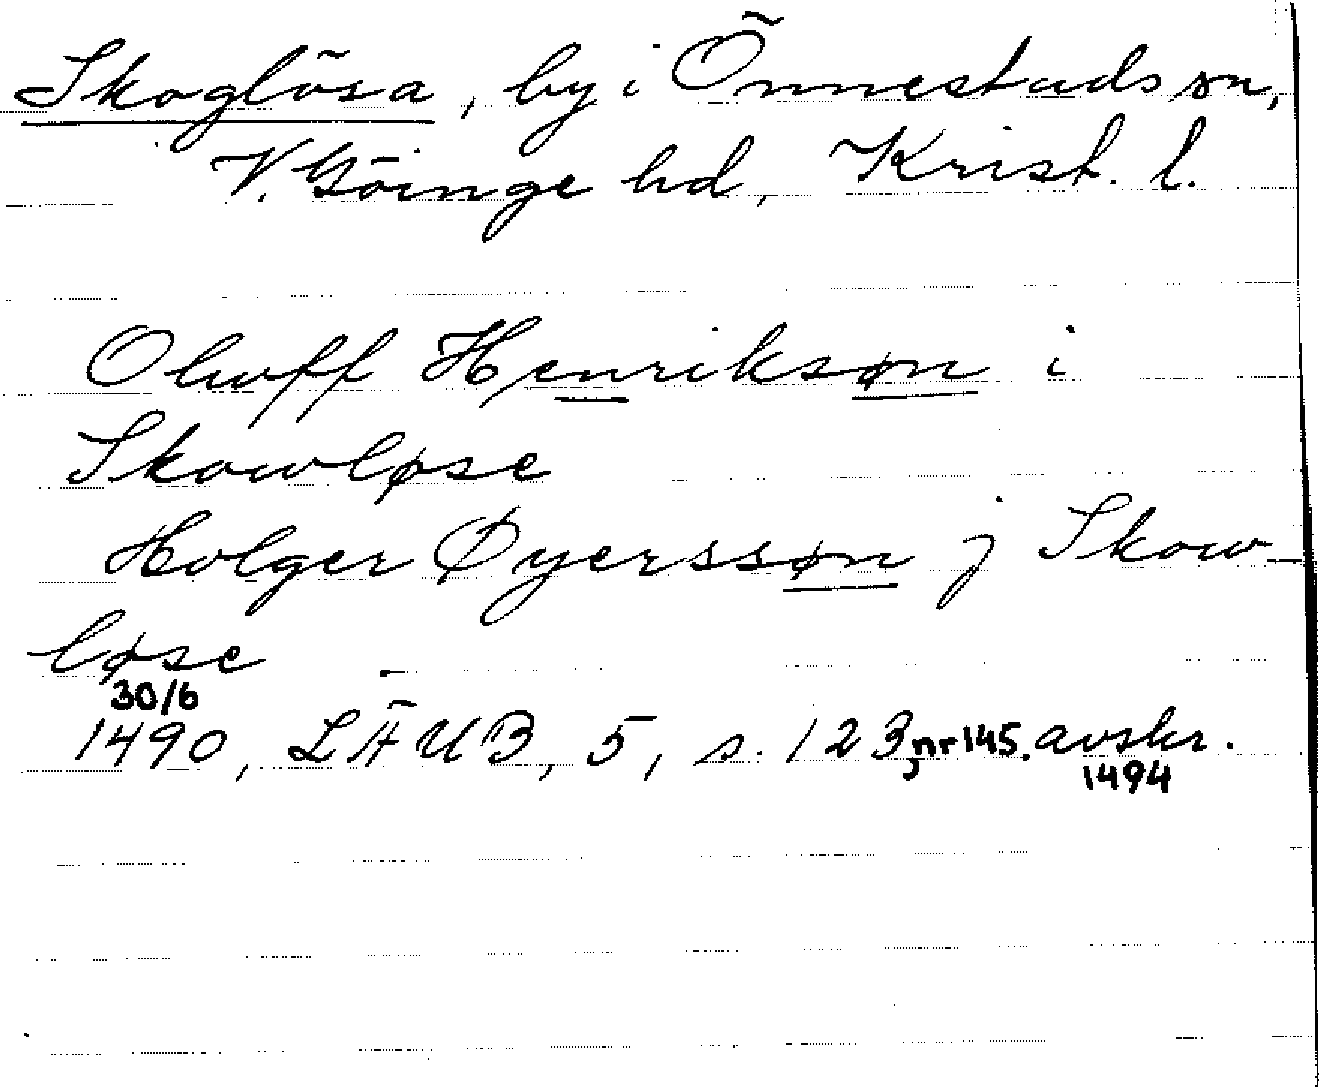 Skoglösa, by i Önnestads sn,
V. Göinge hd, Krist. l.
Oluff Henriksøn i
Skowløse
Holger Øyerssøn j Skow-
løse
30/6
1490, LÄUB, 5, s. 123, nr 145. avskr.
1494